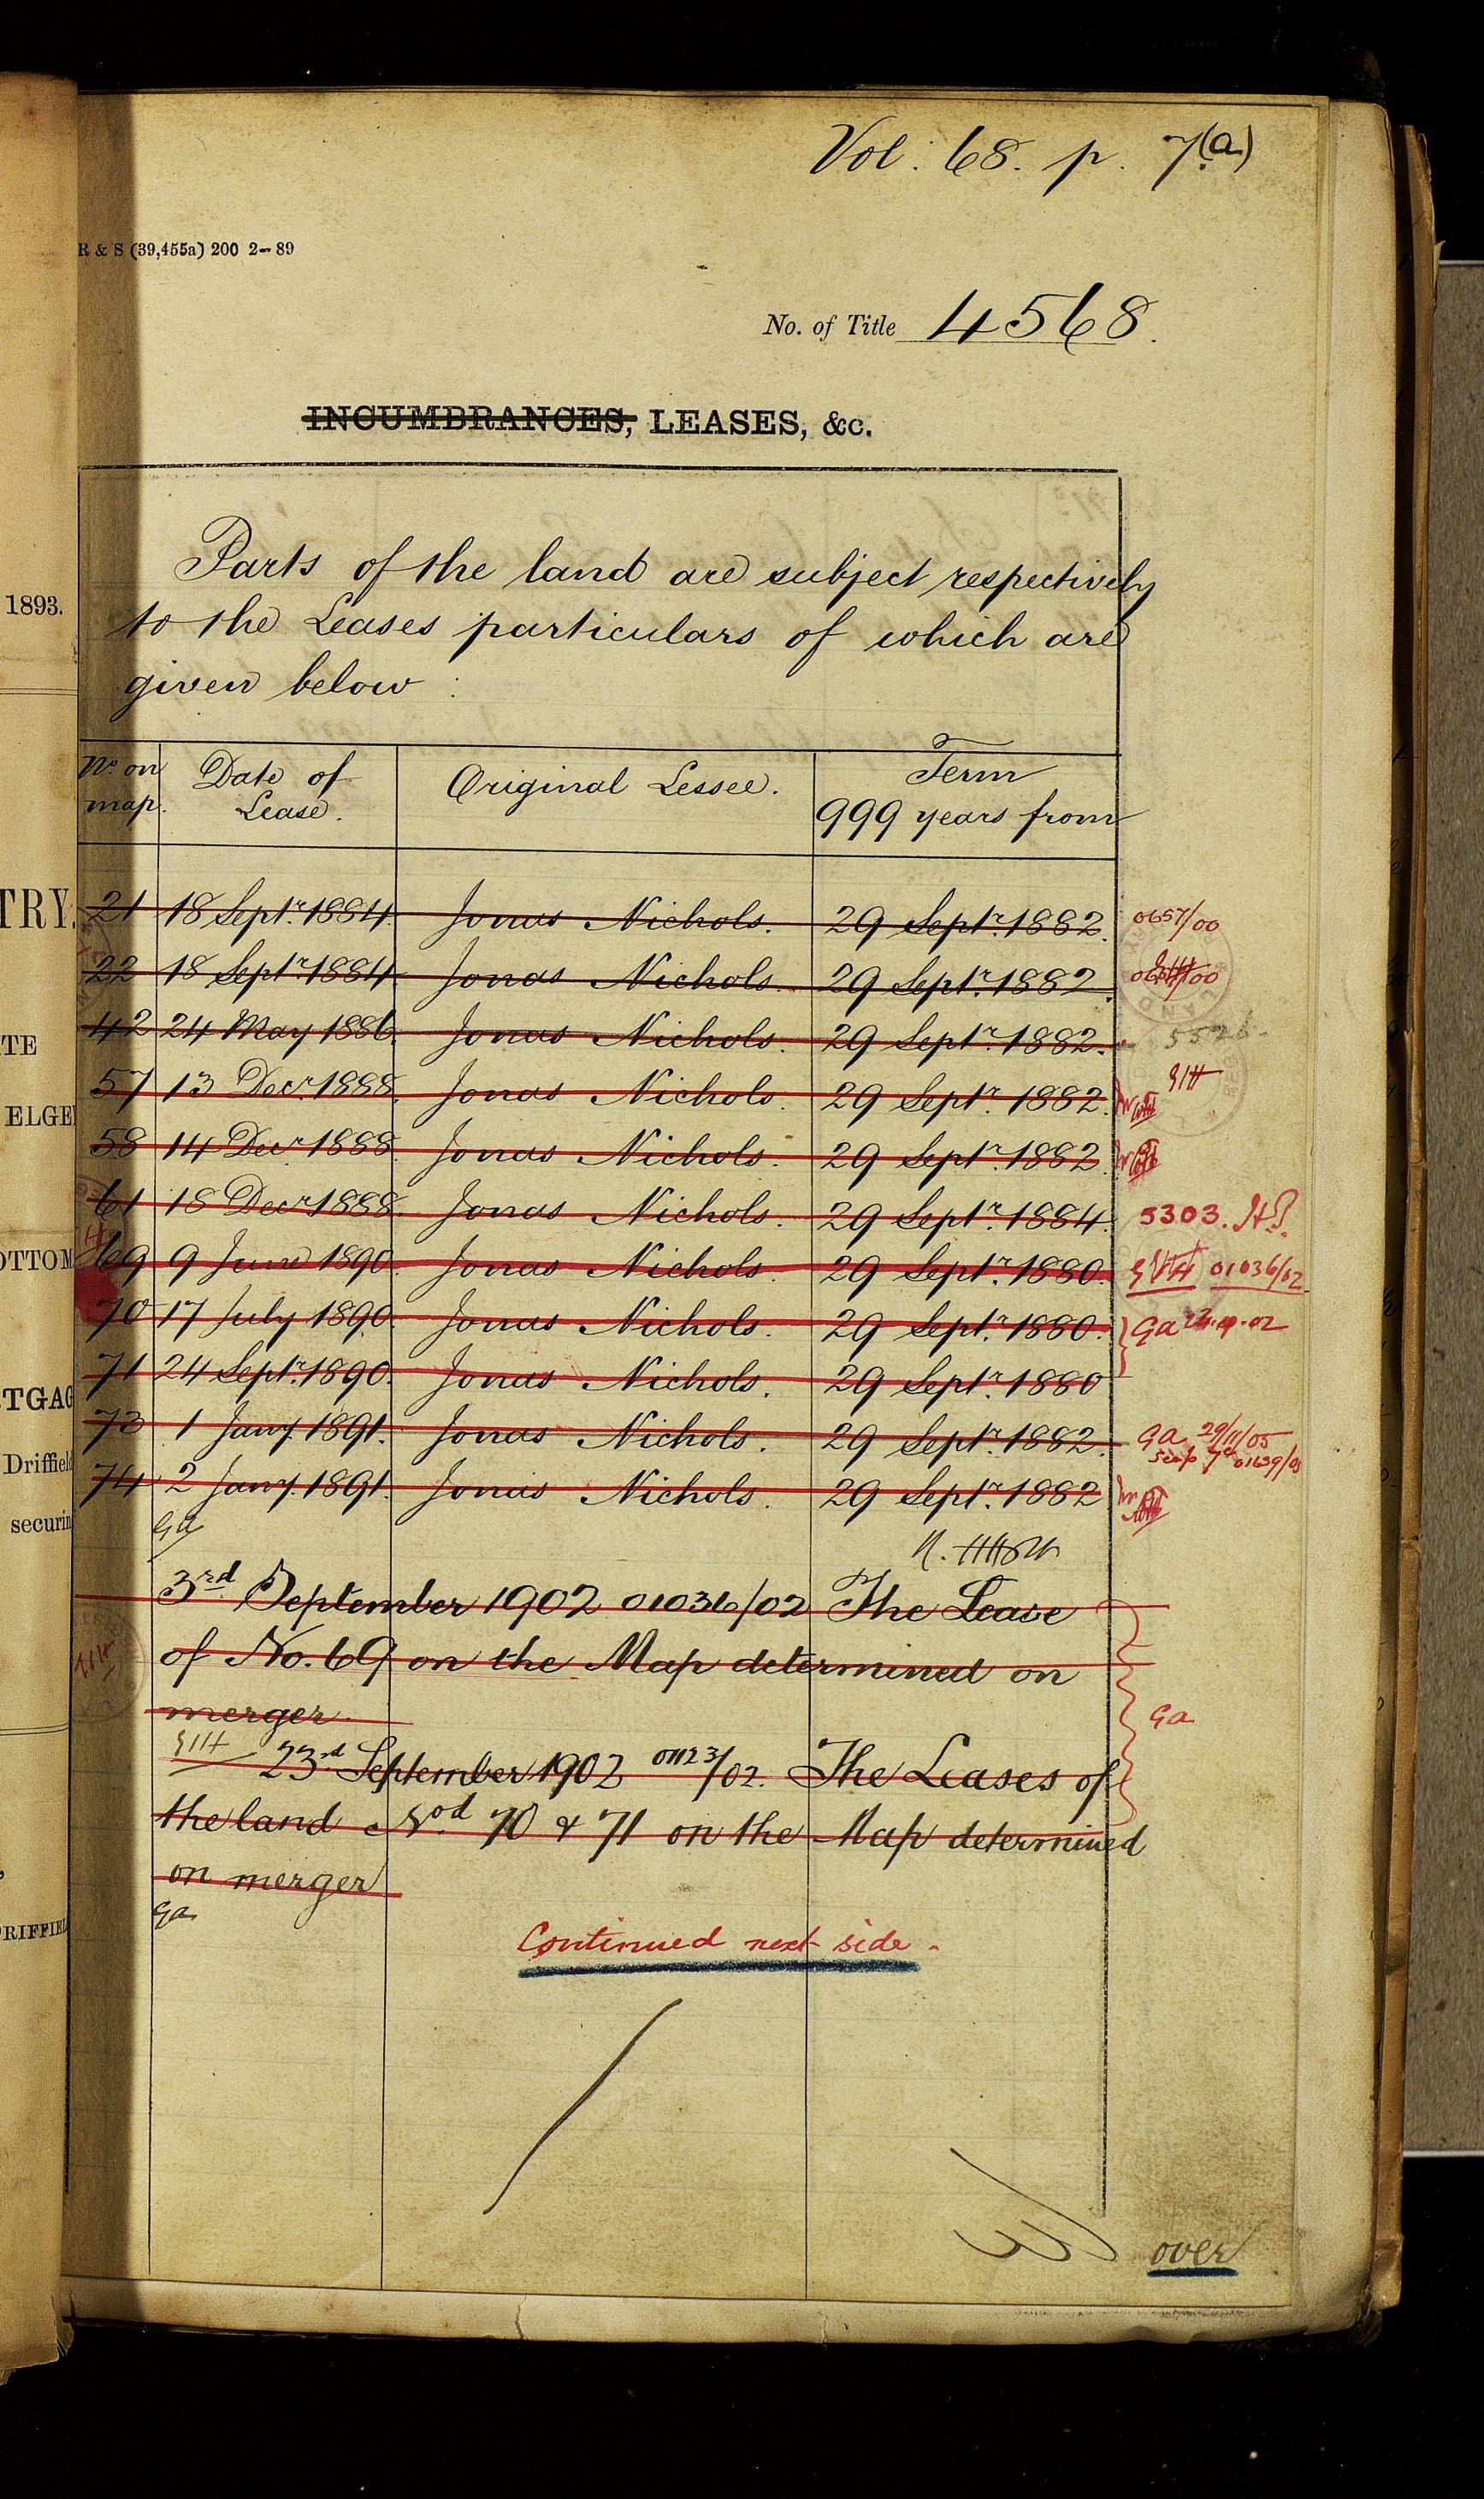 Vol. 68. p. 7(a)
R & S (39,455a) 200 2–89
No. of Title 4568.
INCUMBRANCES, LEASES, &c.
1893.
Parts of the land are subject respectively
to the Leases particulars of which are
given below :
No. on map. Date of Lease. Original Lessee. Term 999 years from
TRY.
21 18 Septr. 1884. Jonas Nichols. 29 Septr. 1882. 0657/00
22 18 Septr. 1884 Jonas Nichols. 29 Septr. 1882.
42 24 May 1886. Jonas Nichols. 29 Septr. 1882. 5526
TE
57 13 Decr. 1888. Jonas Nichols. 29 Septr. 1882.
ELGE
58 14 Decr. 1888. Jonas Nichols. 29 Septr. 1882.
61 18 Decr. 1888. Jonas Nichols. 29 Septr. 1884. 5303.
OTTOM
69 9 June 1890. Jonas Nichols. 29 Septr. 1880. 01036/02
70 17 July 1890. Jonas Nichols. 29 Septr. 1880. Ga
71 24 Septr. 1890. Jonas Nichols. 29 Septr. 1880
TGAG
73 1 Jany. 1891. Jonas Nichols. 29 Septr. 1882 Ga 29/11/05
Driffield
74 2 Jany. 1891. Jonas Nichols. 29 Septr. 1882
securin
Ga
3rd September 1902 01036/02 The Lease
of No. 69 on the Map determined on
merger.
Ga
23rd September 1902 01123/02. The Leases of
the land Nod 70 & 71 on the Map determined
on merger
Ga
RIFFIEL
Continued next side.
over